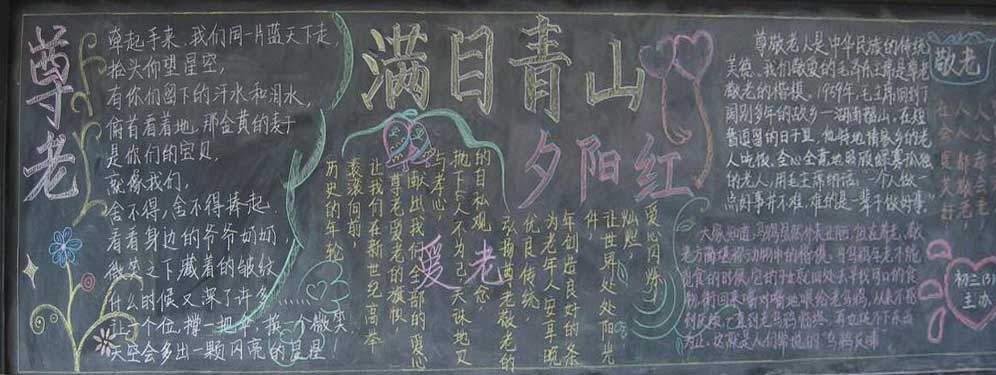 尊老
尊起手来,我们同一片蓝天下走,
抬头仰望星空,
有你们留下的汗水和泪水,
俯首看着地,那金黄的麦子
是你们的宝贝,
就像我们,
舍不得,舍不得捧起
看看身边的爷爷奶奶,
微笑之下藏着的皱纹
什么时候又深了许多……
让一个位,撑一把伞,找一个微笑
天空会多出一颗闪亮的星星!
满目青山
夕阳红
爱老
爱心闪烁,
灿燃,
让世界处处阳光
件,
年创造良好的条
为老年人安享晚
优良传统,
弘扬尊老敬老的
的自私观念,
抛下人不为己天诛地灭
与孝心,
献出我们全部的爱心
尊老爱老的旗帜,
让我们在新世纪高举
滚滚向前,
历史的车轮
尊敬老人是中华民族的传统
美德,我们敬爱的毛泽东主席是尊老
敬老的楷模。1959年,毛主席回到了
阔别多年的故乡—湖南韶山,在短
暂逗留的日子里,他特地请家乡的老
人吃饭,
的老人,用毛主席的话:“一个人做一
点好事并不难,难的是一辈子做好事。
大家知道,乌鸦
老方面堪称动物中的楷模,
食的时候,它的子女就四处去寻找可口的食
物,衔回来嘴对嘴地喂给老乌鸦,从来不感
到厌烦,一直到老乌鸦临终,再也吃不下东西
为止,这就是人们常说的“乌鸦反哺
敬老
人人敬老
人人
社会
会更美好
初三(3)
主办